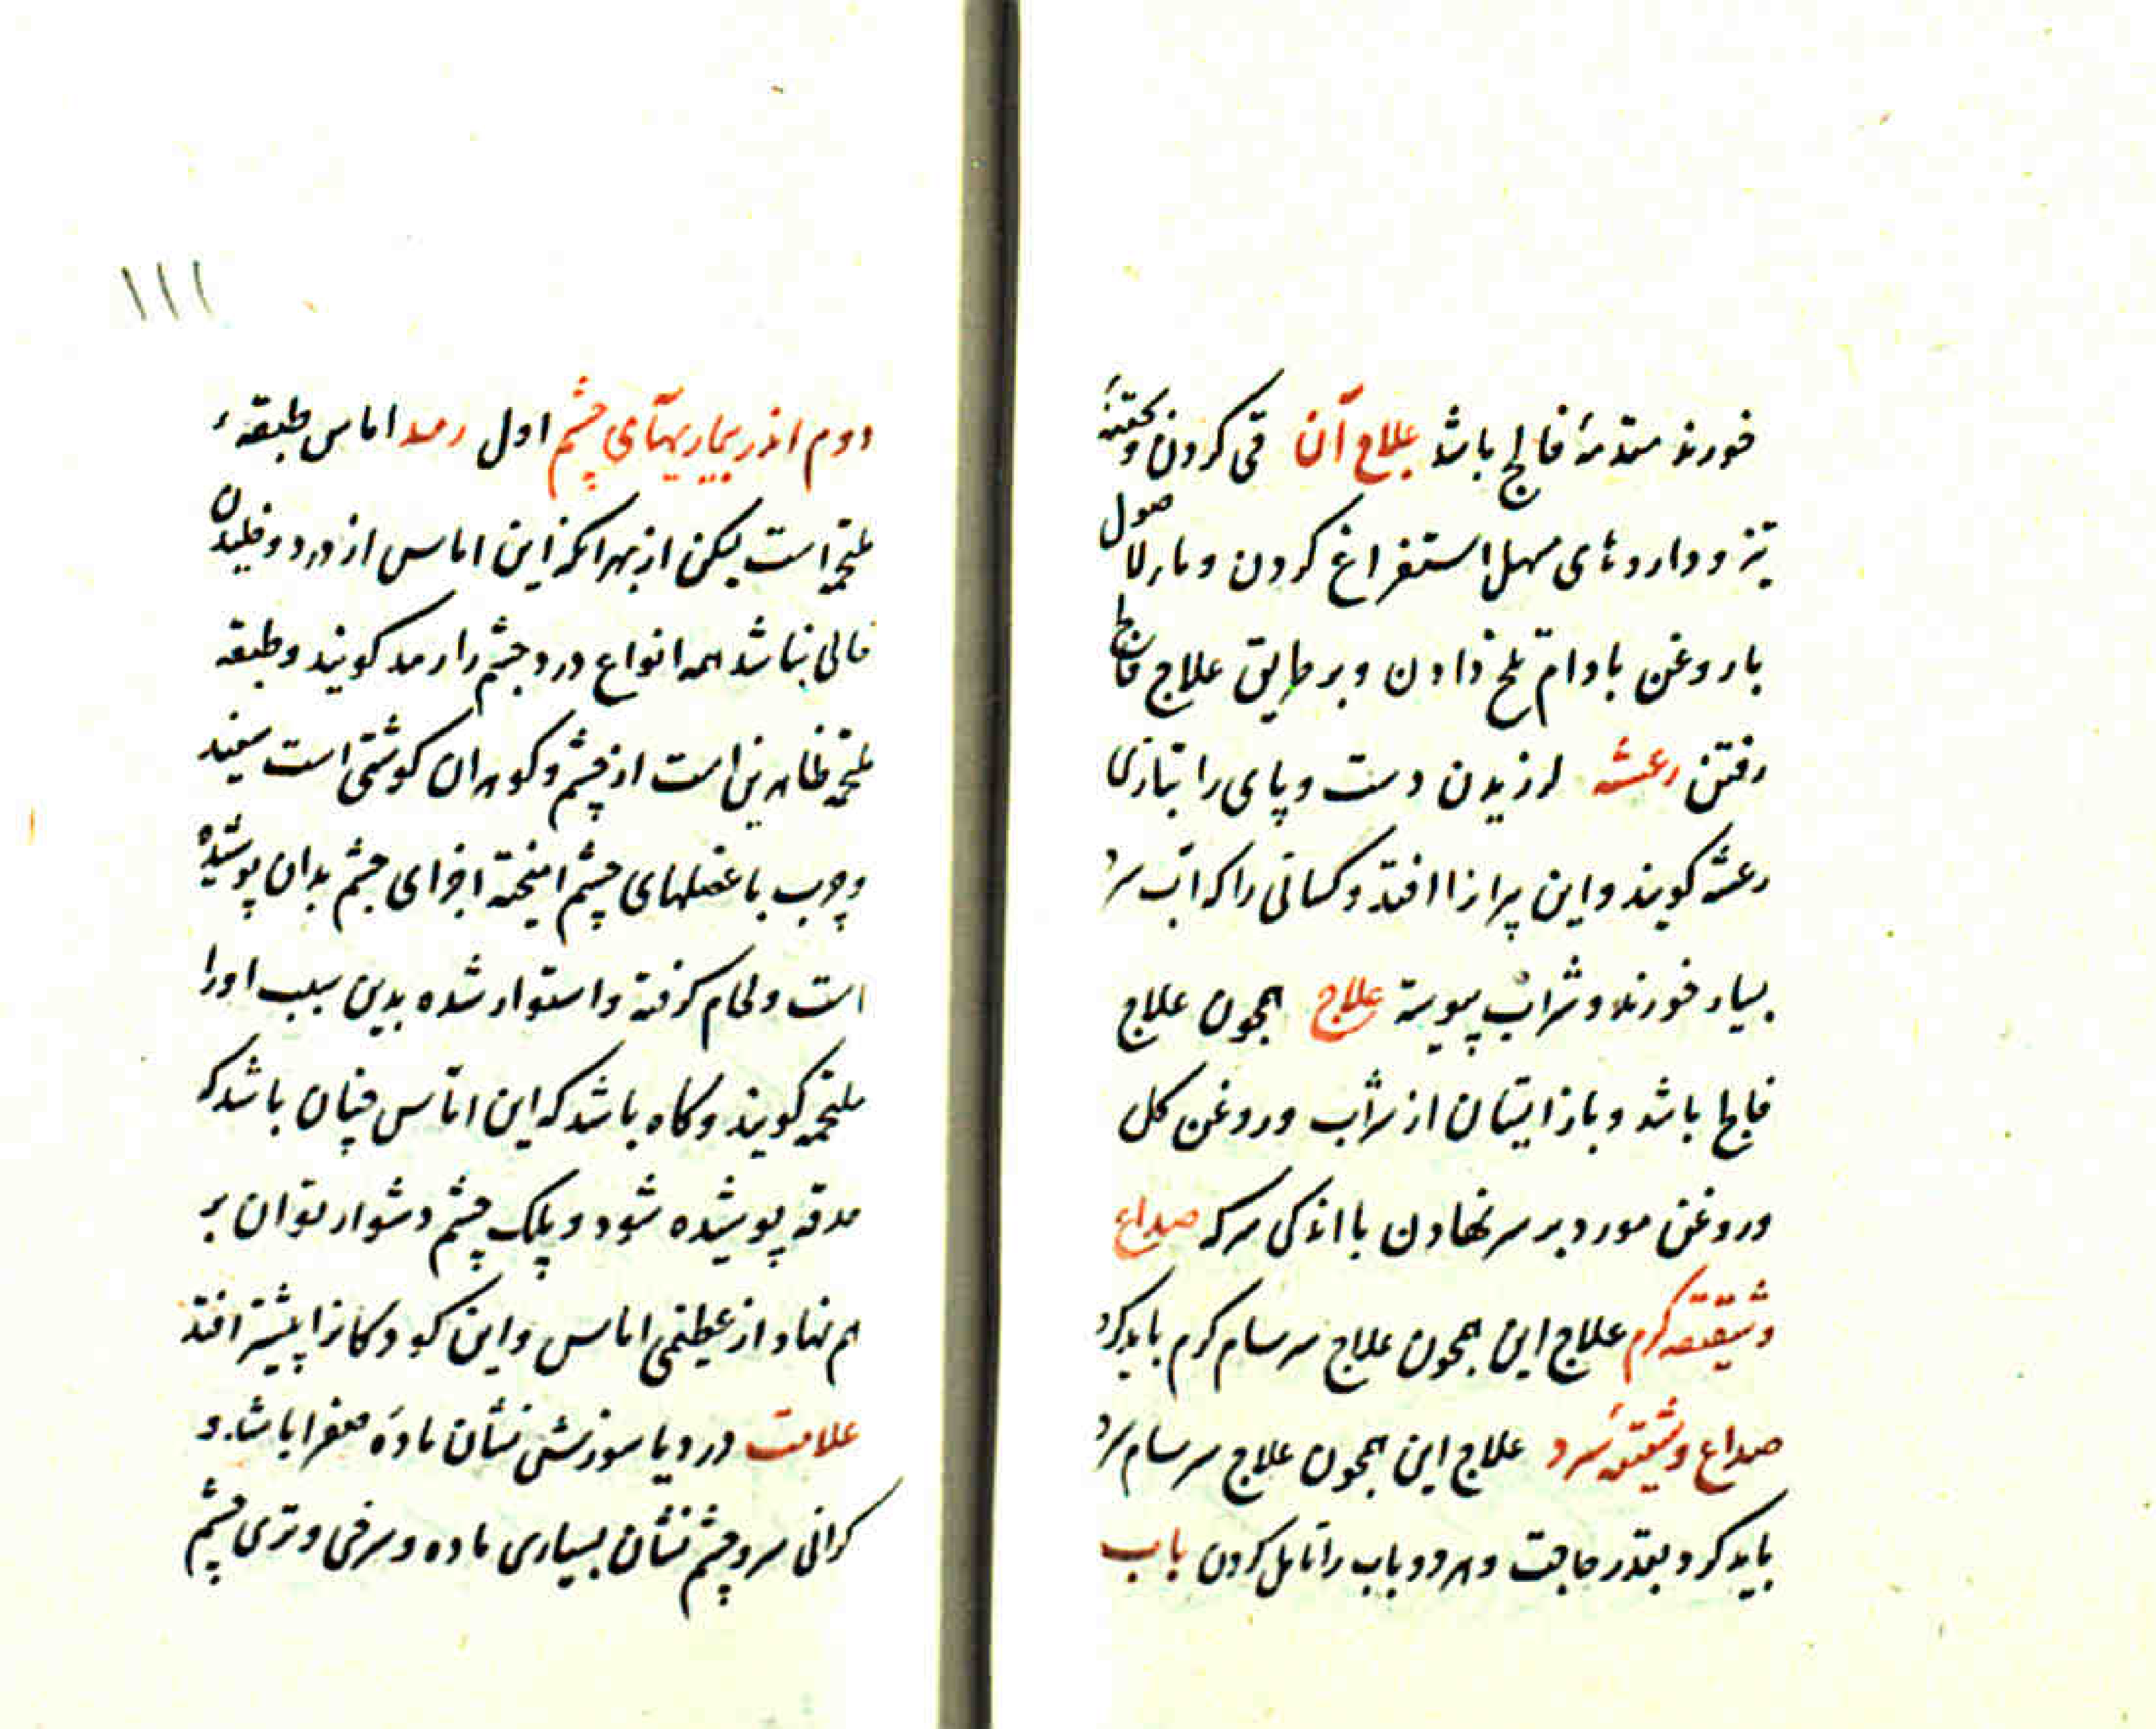 خورند مقدمهٔ فالج باشد علاج آن قی کردن و حقنهٔ
تیز و داروهای مسهل استفراغ کردن و ماء الاصول
با روغن بادام تلخ دادن و بر طریق علاج فالج
رفتن رعشه لرزیدن دست و پای را بتازی
رعشه کویند و این پیرانرا افتد و کسانی را که آب سرد
بسیار خورند و شراب پیوسته علاج همچون علاج
فالج باشد و باز ایستادن از شراب و روغن کل
و روغن مورد بر سر نهادن با اندکی سرکه صداع
و شقیقه کرم علاج این همچون علاج سرسام کرم باید کرد
صداع و شقیقه سرد علاج این همچون علاج سرسام سرد
باید کرد بقدر حاجت و هر دو باب را تامل کردن باب
۱۱۱
دوم اندر بیماریهای چشم اول رمد اماس طبقهٔ
ملتحمه است لیکن از بهر انکه این اماس از درد و خلیدن
خالی نباشد همه انواع درد چشم را رمد کویند و طبقه
ملتحمه ظاهرین است از چشم و کوهر ان کوشتی است سفید
و چرب با عضلهای چشم امیخته اجزای چشم بدان پوشیده
است و لحام کرفته و استوار شده بدین سبب او را
ملتحمه کویند و کاه باشد که این اماس چنان باشد که
حدقه پوشیده شود و پلک چشم دشوار توان بر
هم نهاد از عظیمی اماس و این کودکانرا بیشتر افتد
علامت درد با سوزش نشان مادهٔ صفرا باشد و
کرانی سر و چشم نشان بسیاری ماده و سرخی و تری چشم